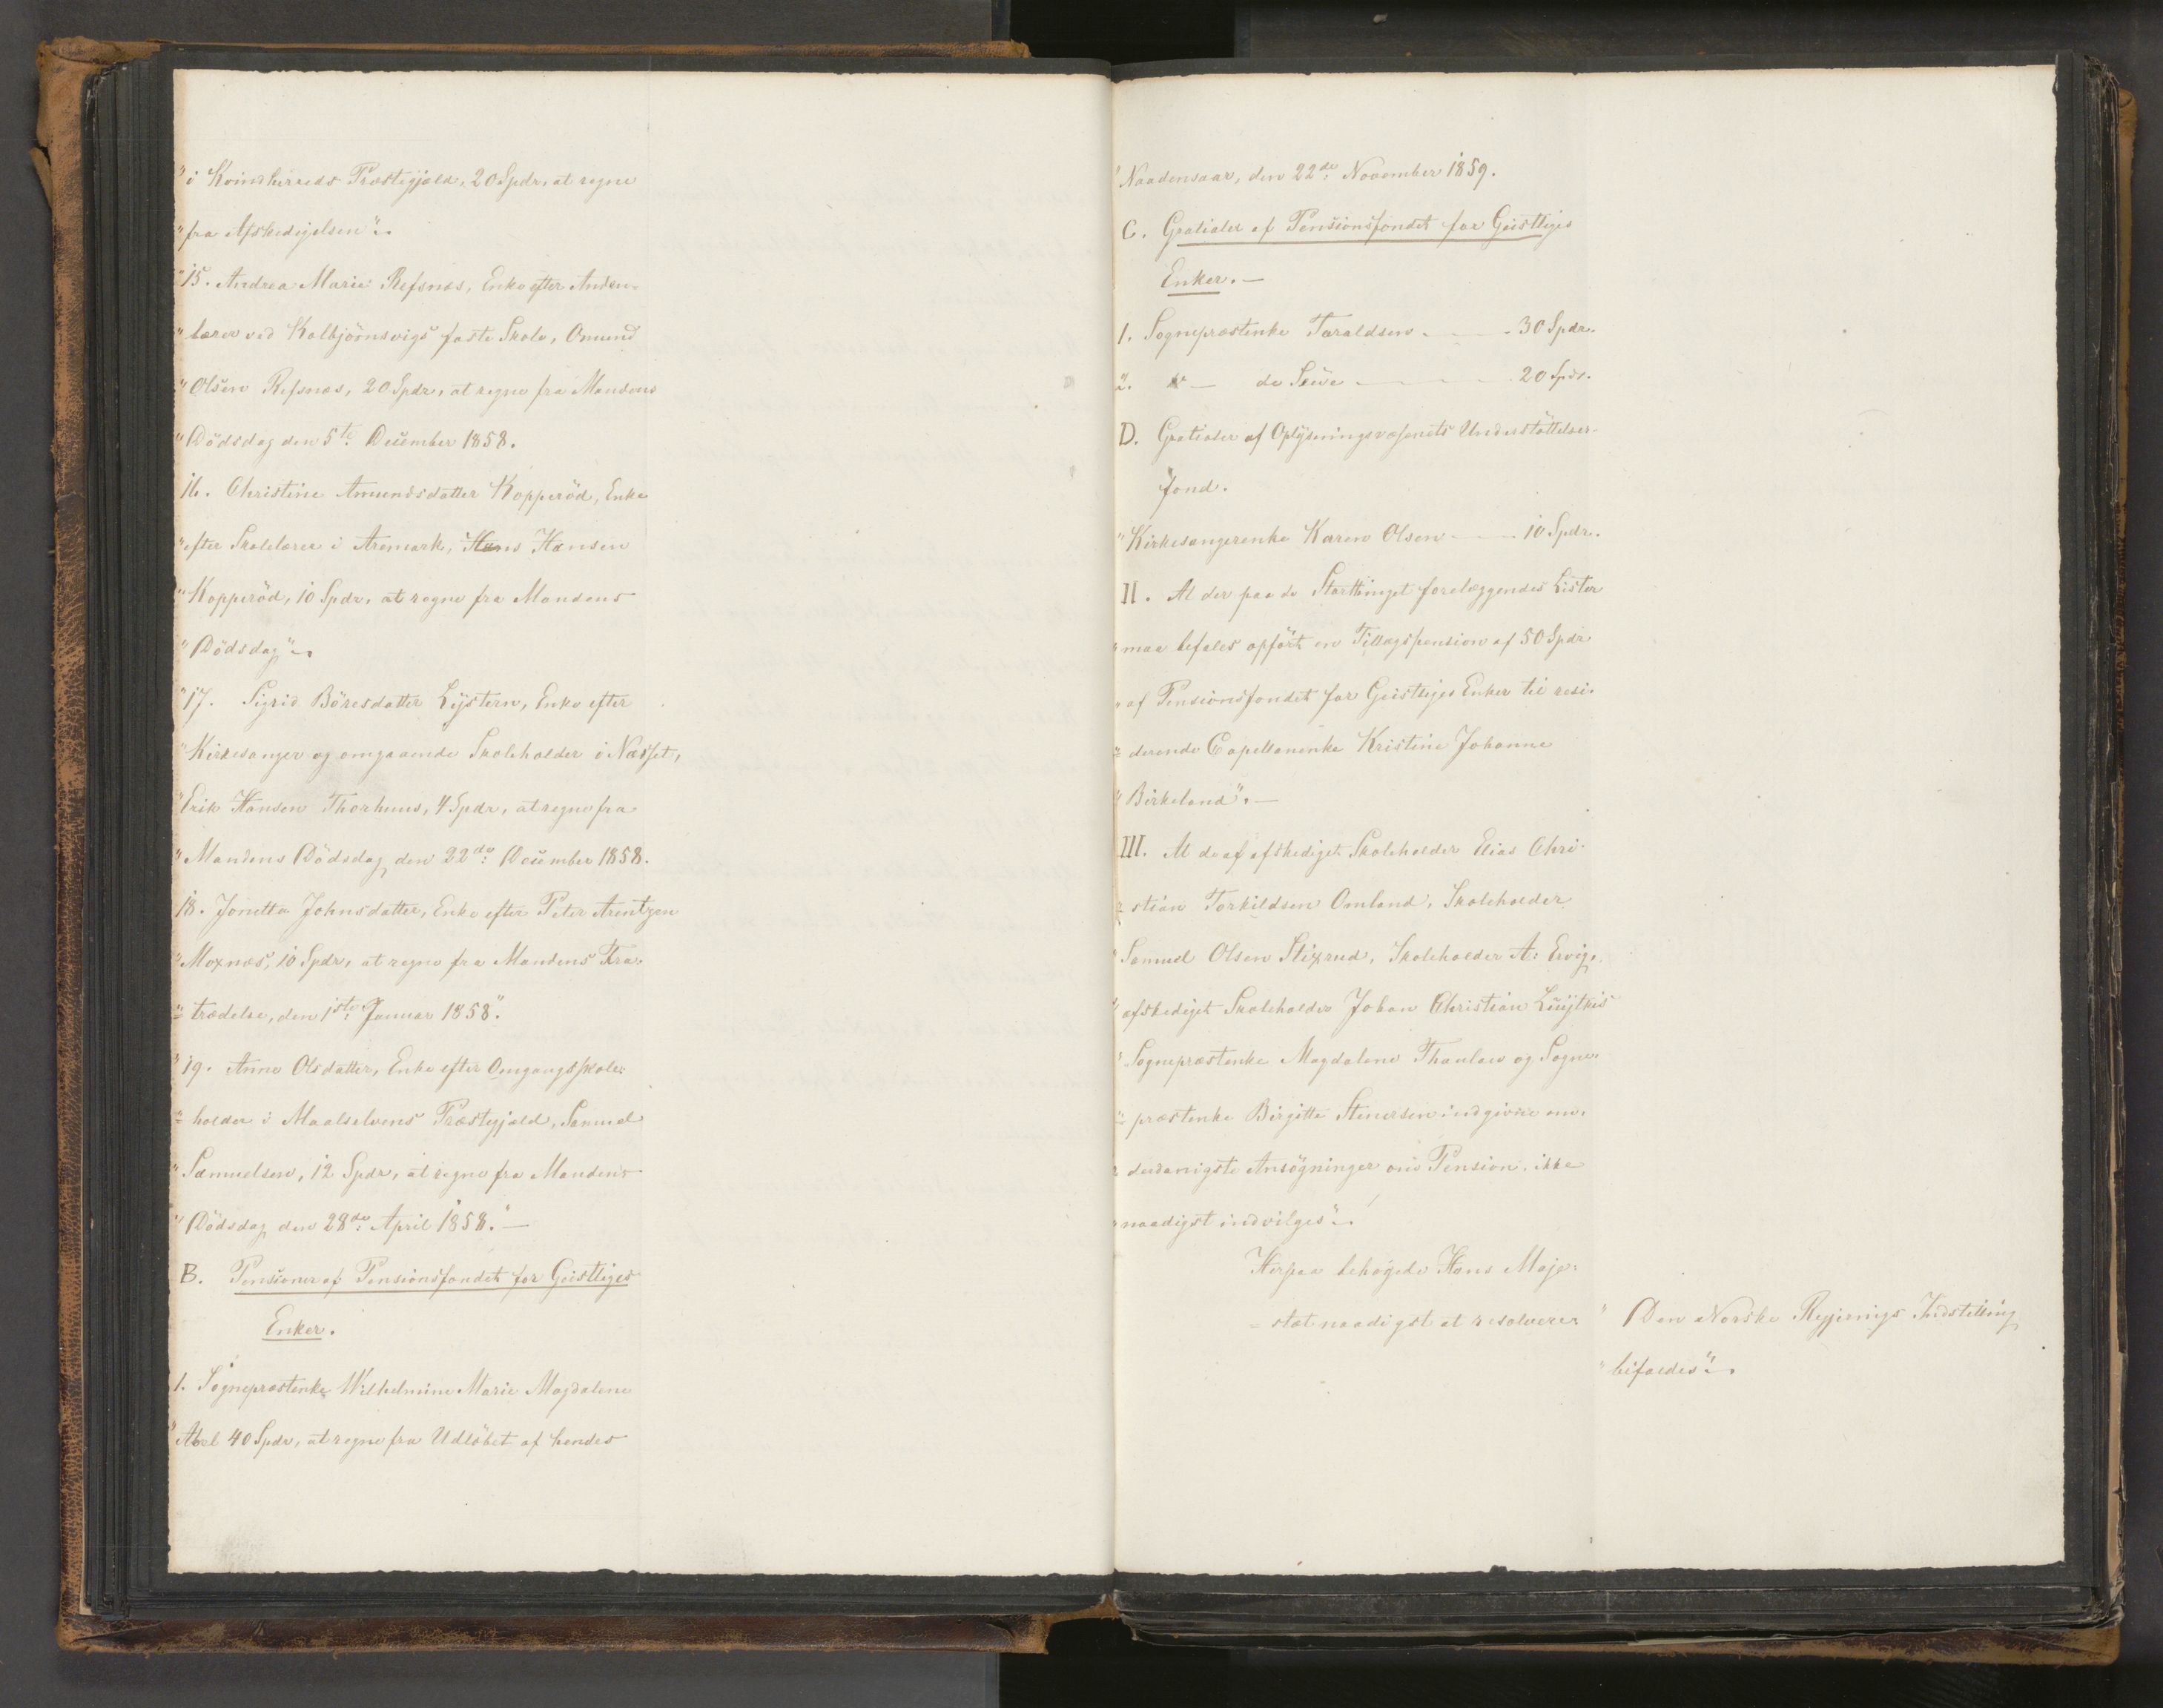 "i Kvindherreds Præstegjæld, 20 Spdr, at regne
"fra Afskedigelsen".
"15. Andrea Marie Refsnæs, Enke efter Anden-
"lærer ved Kolbjörnsvigs faste Skole, Omund
"Olsen Refsnæs, 20 Spdr, at regne fra Mandens
"Dödsdag den 5te December 1858.
16. Christine Amundsdatter Kopperöd, Enke
"efter Skolelærer i Aremark, Hans Hansen
"Kopperöd, 10 Spdr, at regne fra Mandens
"Dödsdag".
"17. Sigrid Böresdatter Lystern, Enke efter
"Kirkesanger og omgaaende Skoleholder i Næsset,
"Erik Hansen Thorhuus, 4 Spdr, at regne fra
"Mandens Dödsdag den 22de December 1858.
18. Jonetta Johnsdatter, Enke efter Peter Arentzen
"Moxnæs, 10 Spdr, at regne fra Mandens Fra-
"trædelse, den 1ste Januar 1858".
"19. Anne Olsdatter, Enke efter Omgangsskole-
"holder i Maalselvens Præstegjæld, Samuel
"Samuelsen, 12 Spdr, at regne fra Mandens
"Dödsdag den 28de April 1858."—
B. Pensioner af Pensionsfondet for Geistliges
Enker.
1. Sognepræstenke Wilhelmine Marie Magdalene
"Abel 40 Spdr, at regne fra Udlöbet af hendes
"Naadensaar, den 22de November 1859.
C. Gratialer af Pensionsfondet for Geistliges
Enker.—
1. Sognepræstenke Taraldsen — 30 Spdr.
2. — de Seüe — 20 Spdr.
D. Gratialer af Oplysningsvæsenets Understöttelses-
fond.
"Kirkesangerenke Karen Olsen — 10 Spdr.
II. At der paa de Storthinget forelæggendes Lister
"maa befales opfört en Tillægspension af 50 Spdr
"af Pensionsfondet for Geistliges Enker til resi-
"derende Capellanenke Kristine Johanne
"Birkeland".—
III. At de af afskediget Skoleholder Elias Chri-
"stian Torkildsen Omland, Skoleholder
"Samuel Olsen Stixrud, Skoleholder A: Ervig,
"afskediget Skoleholder Johan Christian
"Sognepræstenke Magdalene Thaulow og Sogne-
"præstenke Birgitte Stenersen indgivne un-
"derdanigste Ansögninger om Pension, ikke
"naadigst indvilges".
Herpaa behagede Hans Maje-
=stæt naadigst at resolvere: "Den Norske Regjerings Indstilling
"bifaldes".